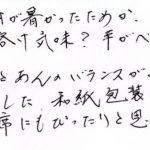 が暑かったためか、
溶け気味?手がべ
とあんのバランスが
した。和紙包装
席にもぴったりと思